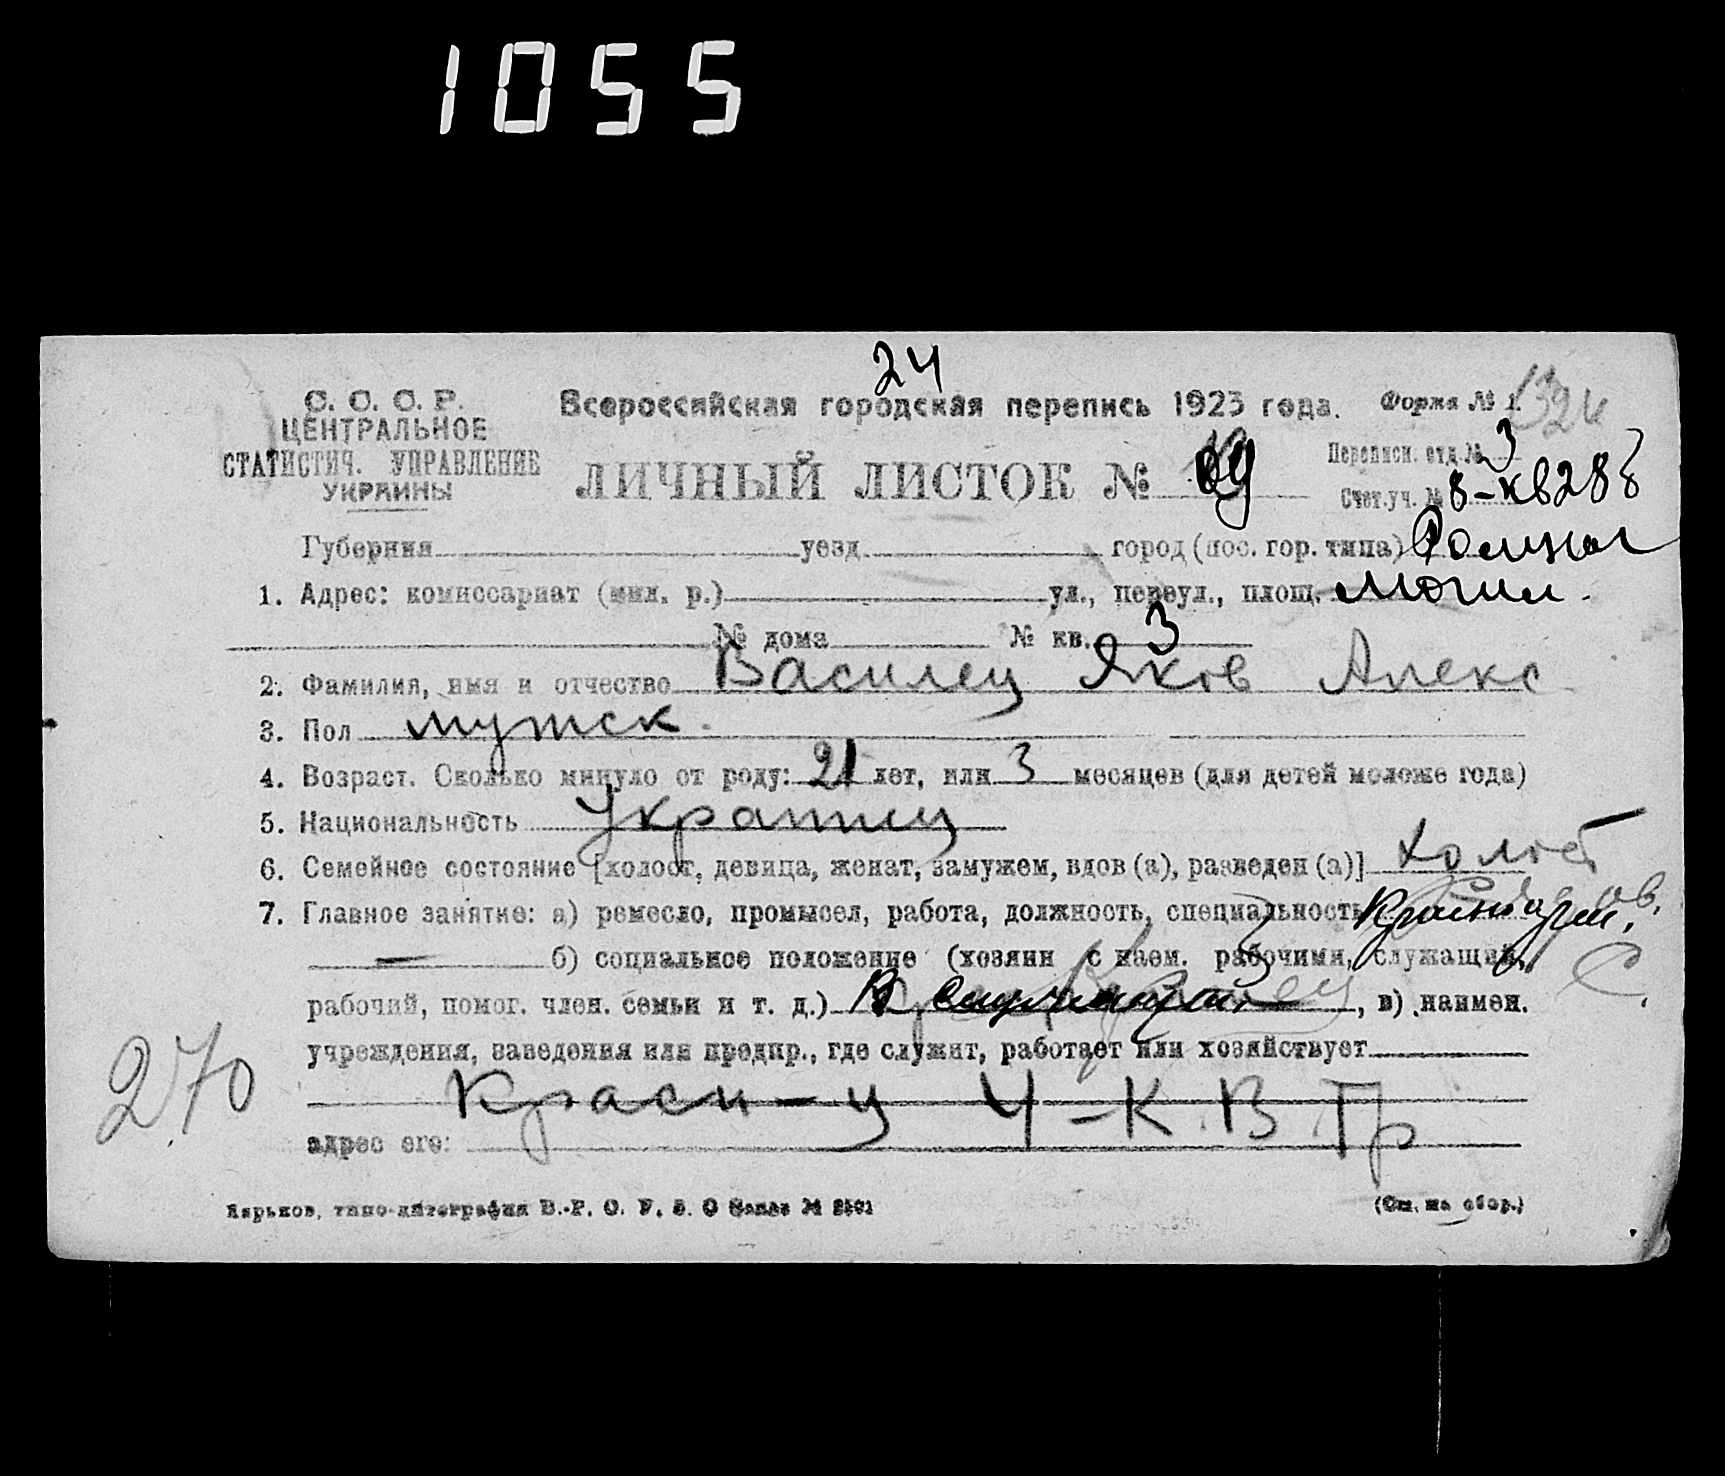 1055
24
С. С. С. Р.
ЦЕНТРАЛЬНОЕ
СТАТИСТИЧ. УПРАВЛЕНИЕ
УКРАИНЫ
Всероссийская городская перепись 1923 года.
Форма № 1.
ЛИЧНЫЙ ЛИСТОК №
Переписн. отд. № 3
Счет. уч. № 8-кв 28
Губерния уезд город (пос. гор. типа)
1. Адрес: комиссариат (мил. р.) ул., переул., площ.
№ дома № кв. 3
2. Фамилия, имя и отчество Василец Яков Алекс
3. Пол мужск.
4. Возраст. Сколько минуло от роду: 21 лет, или 3 месяцев (для детей моложе года)
5. Национальность Украинец
6. Семейное состояние [холост, девица, женат, замужем, вдов (а), разведен (а)] холост
7. Главное занятие: а) ремесло, промысел, работа, должность, специальность
б) социальное положение (хозяин с наем. рабочими, служащий,
рабочий, помог. член. семьи и т. д.) , в) наимен.
учреждения, заведения или предпр., где служит, работает или хозяйствует
270
Красн-ц 4-К.В.Гр
адрес его:
Харьков, типо-литография
(См. на обор.)